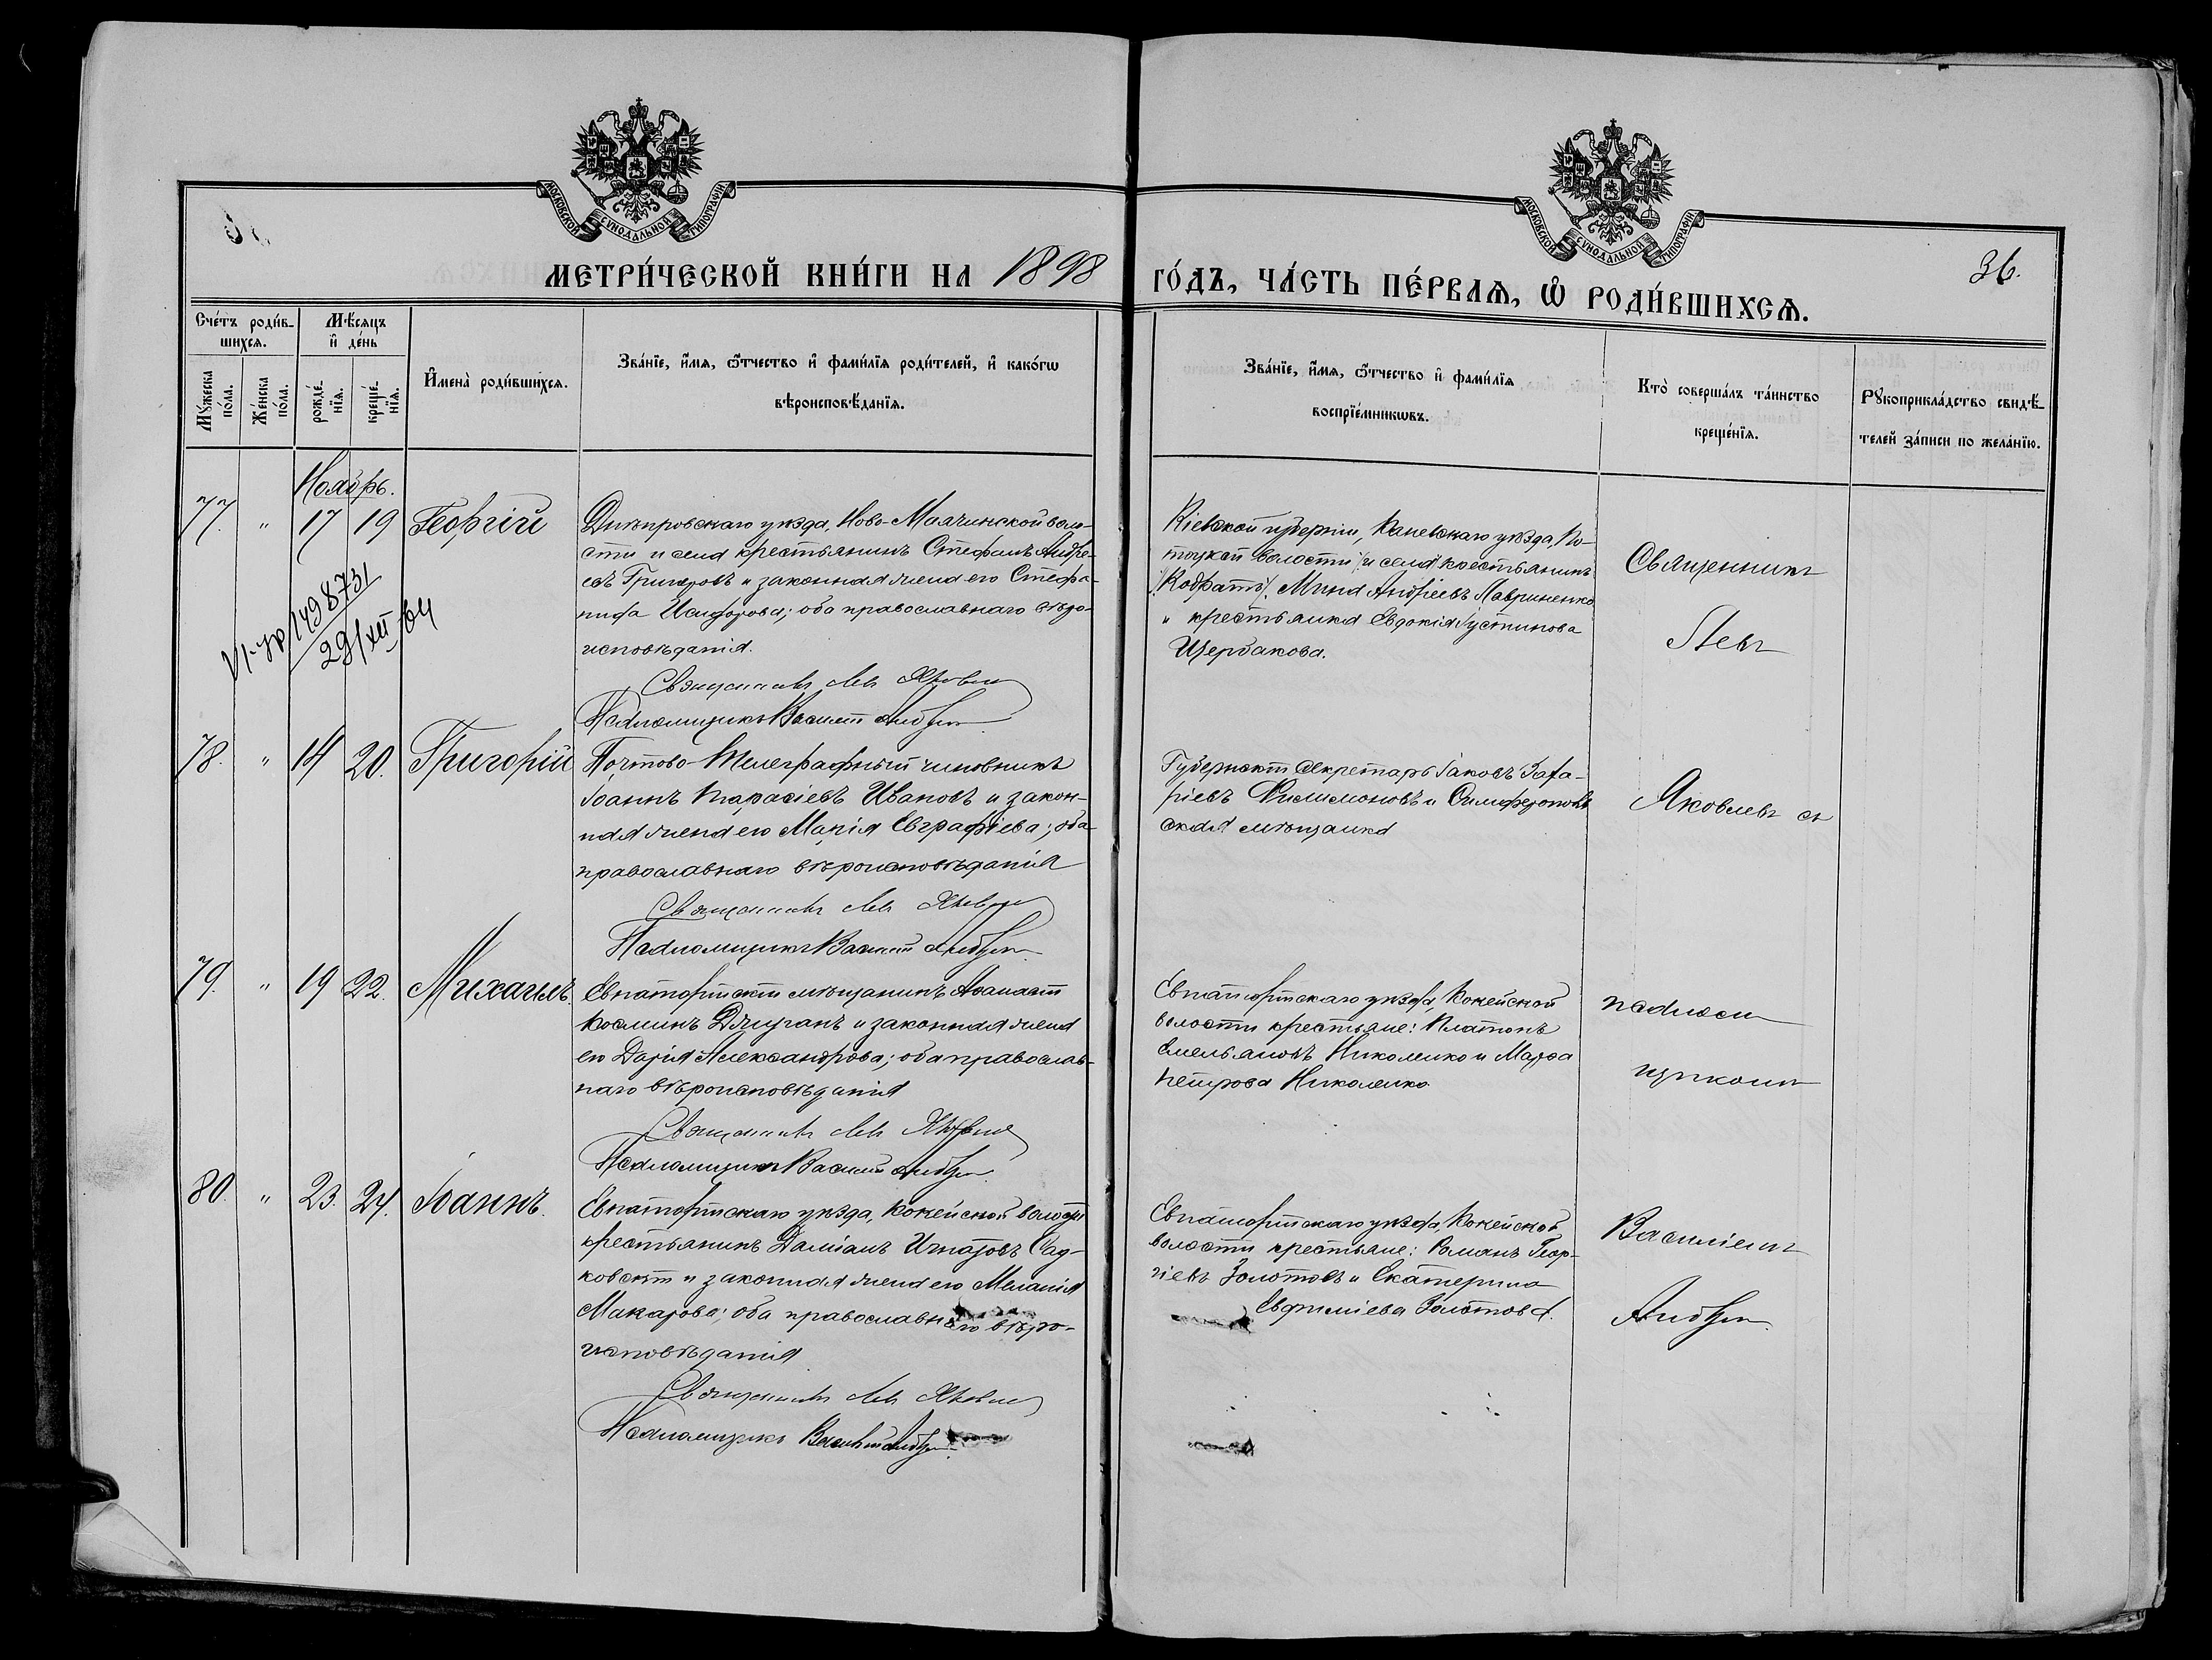 МОСКОВСКОЙ СѴНОДАЛЬНОЙ ТИПОГРАФІИ
МОСКОВСКОЙ СѴНОДАЛЬНОЙ ТИПОГРАФІИ
МЕТРИ́ЧЕСКОЙ КНИ́ГИ НА 1898 ГО́ДЪ, ЧА́СТЬ ПЕ́РВАѦ, Ѡ҆ РОДИ́ВШИХСѦ.
36.
Сче́тъ роди́в-
шихсѧ.
Мѣ́сѧцъ
и҆ де́нь
Мꙋ́жеска
по́ла.
Же́нска
по́ла.
рожде́-
нїѧ.
креще́-
нїѧ.
И҆мена̀ роди́вшихсѧ.
Зва́нїе, и҆́мѧ, ѻ҆́тчество и҆ фами́лїѧ роди́телей, и҆ како́гѡ
вѣроисповѣ́данїѧ.
Зва́нїе, и҆́мѧ, ѻ҆́тчество и҆ фами́лїѧ
воспрїе́мникѡвъ.
Кто̀ соверша́лъ та́инство
креще́нїѧ.
Рꙋкоприкла́дство свидѣ́-
телей за́писи по жела́нїю.
Ноябрь.
77. " 17 19 Георгій
Днѣпровскаго уѣзда, Ново-Маячинской воло-
сти и села крестьянинъ Стефанъ Андре-
евъ Григоровъ и законная жена его Стефа-
нида Исидорова; оба православнаго вѣро-
исповѣданія.
Священникъ Левъ Яковлевъ
Псаломщикъ Василій
Кіевской губерніи, Каневскаго уѣзда, По-
тоцкой волости и села крестьянинъ
Мина Андріевъ Лавриненко
и крестьянка Евдокія Іустинова
Щербакова.
Священникъ
Левъ
149873
29/XII 64
78. " 14 20. Григорій
Почтово-Телеграфный чиновникъ
Іоаннъ Тарасіевъ Ивановъ и закон-
ная жена его Марія Евграфіева; оба
православнаго вѣроисповѣданія
Священникъ Левъ Яковлевъ
Псаломщикъ Василій
Губернскій секретарь Іаковъ Заха-
ріевъ Филимоновъ и Симферополь-
ская мѣщанка
Яковлевъ съ
79. " 19 22. Михаилъ
Евпаторійскій мѣщанинъ Аѳанасій
Косминъ Джуганъ и законная жена
его Дарія Александрова; оба православ-
наго вѣроисповѣданія
Священникъ Левъ Яковлевъ
Псаломщикъ Василій
Евпаторійскаго уѣзда, Конейской
волости крестьяне: Платонъ
Емельяновъ Николенко и Марѳа
Петрова Николенко
псалом-
щикомъ
80. " 23. 24. Іоаннъ.
Евпаторійскаго уѣзда, Конейской волости
крестьянинъ Даміанъ Игнатовъ Сад-
ковскій и законная жена его Меланія
Макарова; оба православнаго вѣро-
исповѣданія
Священникъ Левъ Яковлевъ
Псаломщикъ Василій
Евпаторійскаго уѣзда, Конейской
волости крестьяне: Романъ Геор-
гіевъ Золотовъ и Екатерина
Евфиміева Золотова.
Василіемъ